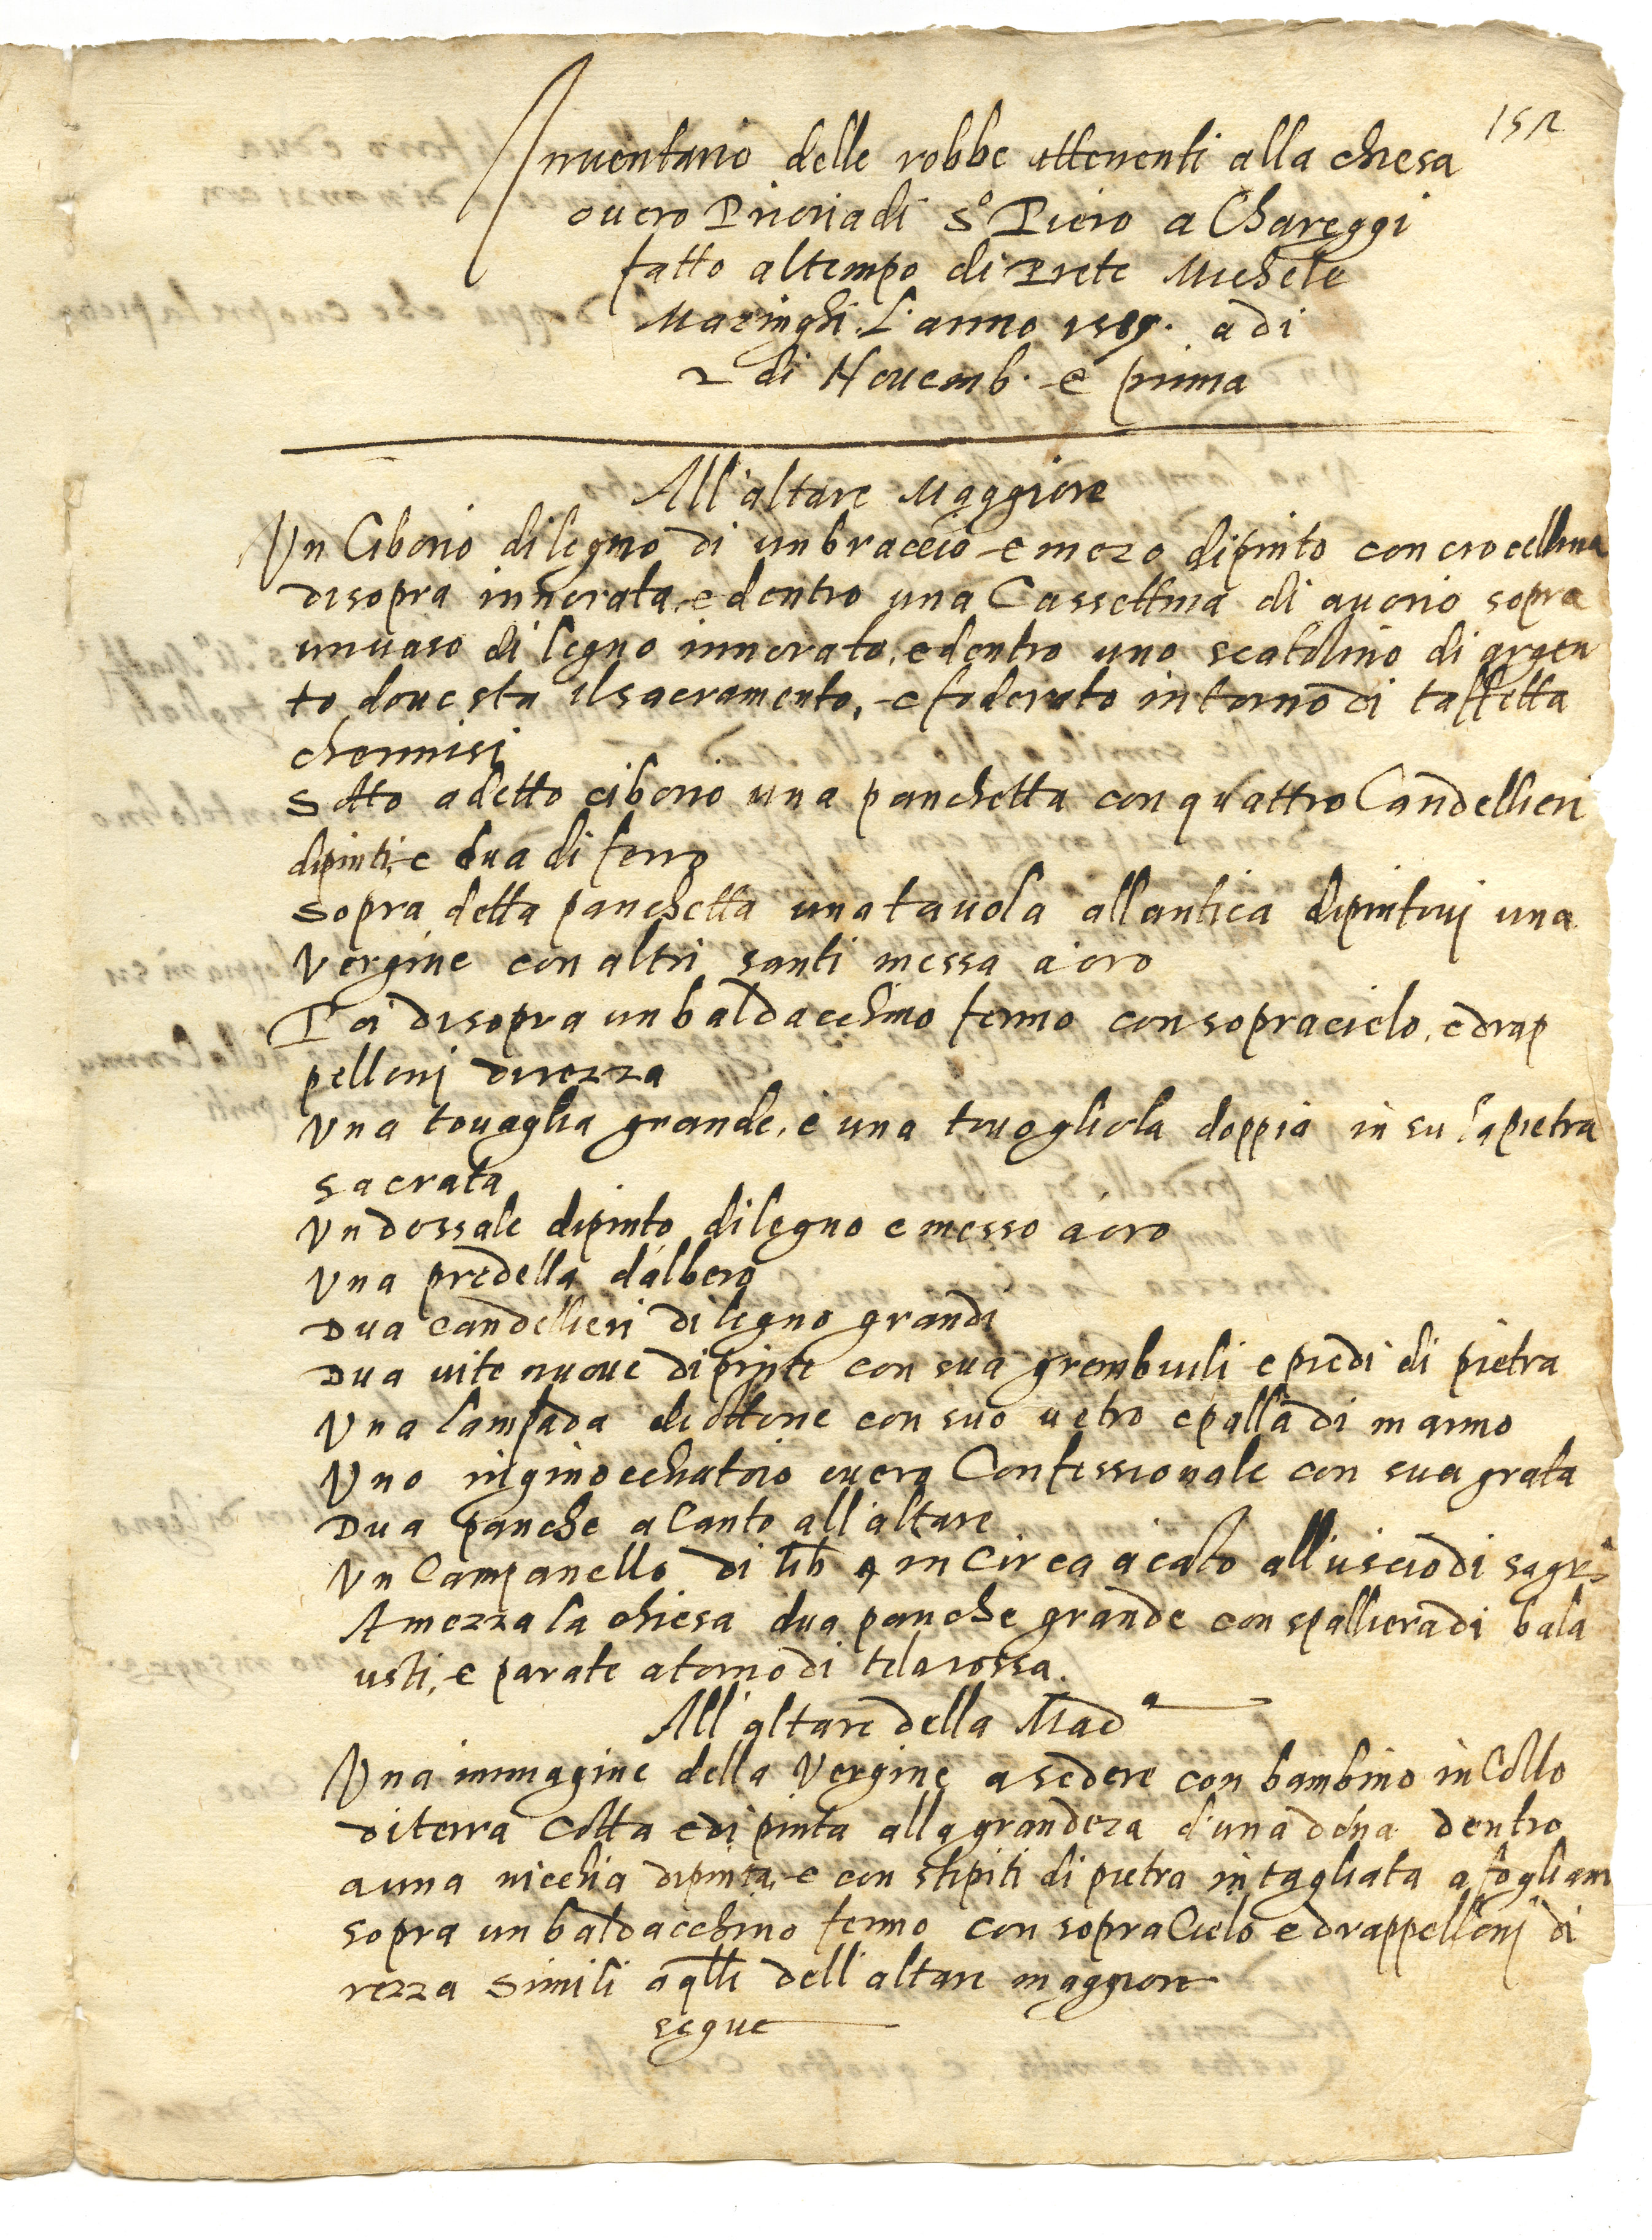 152
Inventario delle robbe attenenti alla chiesa
overo Prioria di S.o Piero a Chareggi
fatto al tempo di Prete Michele
Mazinghi. L'anno 1589. adi
2 di Novemb. e prima
All'altare Maggiore
Un Ciborio di legno di un braccio e mezo dipinto con crocellina
disopra innorata, e dentro una Cassettina di avorio sopra
un vaso di legno innorato, e dentro uno scatolino di argen
to dove sta il sacramento, e foderato intorno di taffetta
chermisi
Sotto a detto ciborio una panchetta con quattro Candellieri
dipinti, e dua di ferro
Sopra detta panchetta una tavola all antica dipintovi una
Vergine con altri santi messa a oro
Poi disopra un baldacchino fermo con sopracielo, e drap
pelloni di rezza
Una tovaglia grande, e una tovagliola doppia in su la pietra
sacrata
Un dossale dipinto di legno e messo a oro
Una predella d'albero
Dua candellieri di legno grandi
Dua vite nuove dipinte con sua grembiuli e piedi di pietra
Una lampada di ottone con suo vetro e palla di marmo
Uno inginocchiatoio overo Confessionale con sua grata
Dua panche a canto all altare
Un Campanello di lib 9 in circa acato all'uscio di sagr.a
A mezza la chiesa dua panche grande con spalliera di bala
usti, e parate atorno di tela rossa.
All altare della Mad.a
Una immagine della Vergine a sedere con bambino in Collo
di terra Cotta e dipinta alla grandeza d'una dona dentro
a una nicchia dipinta, e con stipiti di pietra intagliata a fogliam
sopra un baldacchino fermo con sopra Cielo e drappelloni di
rezza simili a qlli dell altare maggiore
segue